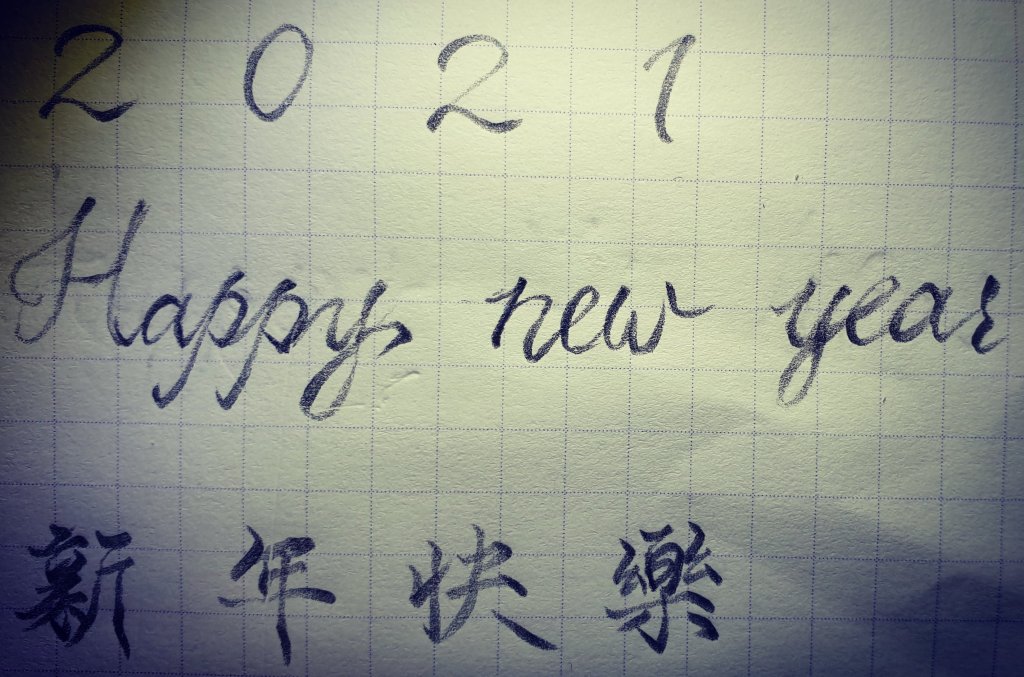 2 0 2 1
Happy new year
新年快樂